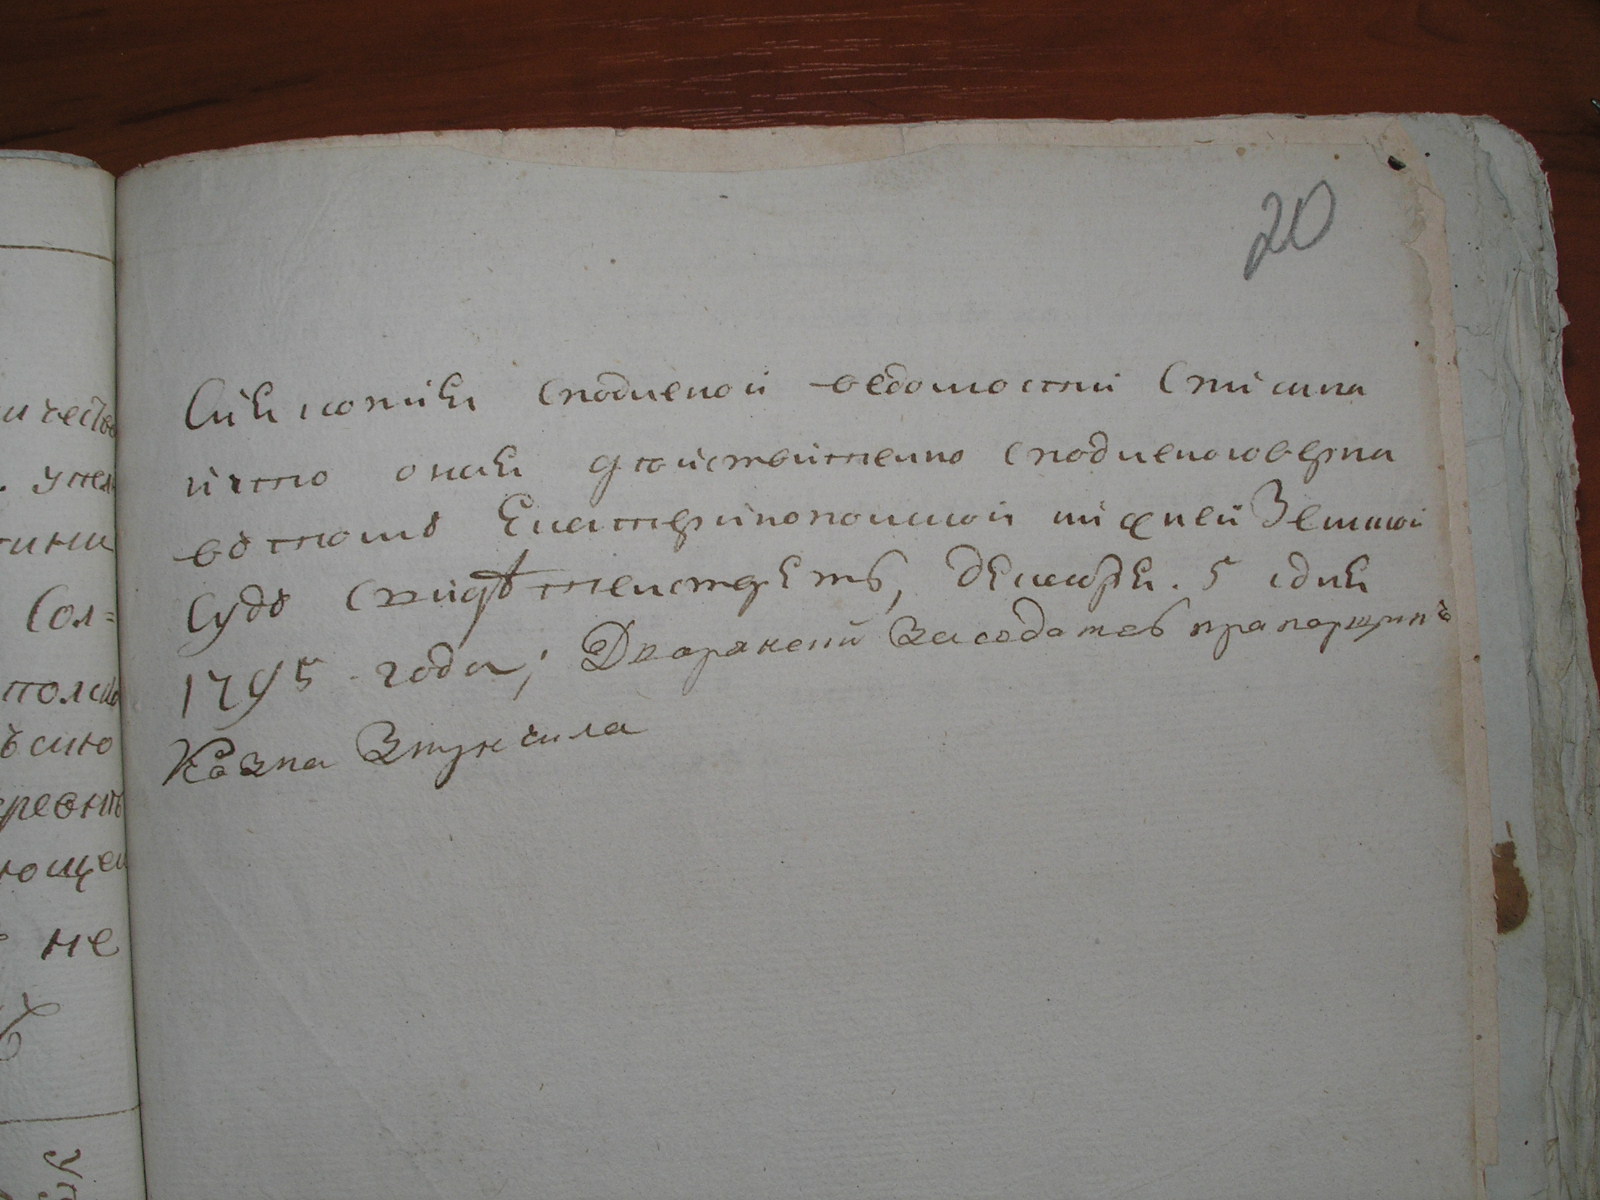 20
Сия копия сподленой ведомостий списана
и что оная действителено сподленою верна
въ томъ Екатеринополской нижней Земской
Судъ свидѣтелствуетъ, декабря. 5 дня
1795 года; Дворянский заседателъ прапорщикъ
Козма
ичеств
Сол=
полсъ
ревнъ
ющей
не